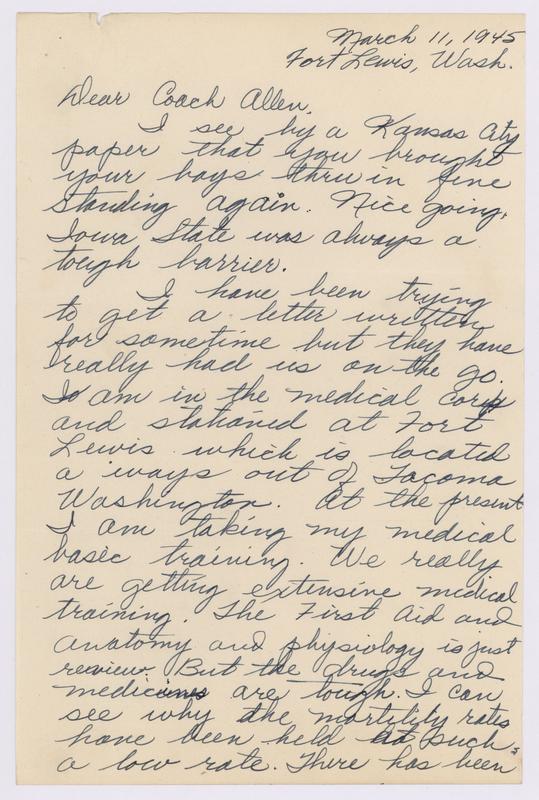 March 11, 1945
Fort Lewis, Wash.
Dear Coach Allen,
I see by a Kansas City
paper that you brought
your boys thru in fine
standing again. Nice going.
Iowa State was always a
tough barrier.
I have been trying
to get a letter written
for sometime but they have
really had us on the go.
I am in the medical corp
and stationed at Fort
Lewis which is located
a ways out of Tacoma
Washington. At the present
I am taking my medical
basic training. We really
are getting extensive medical
training. The First Aid and
anatomy and physiology is just
review. But the drugs and
medicines are tough. I can
see why the mortility rates
have been held at such
a low rate. There has been